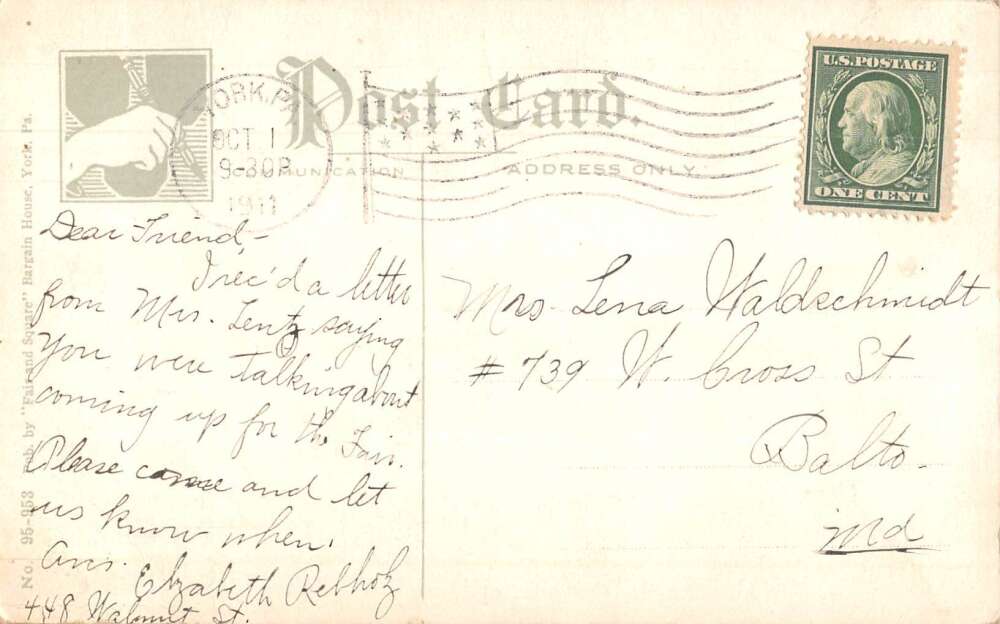 Post Card.
COMMUNICATION
ADDRESS ONLY
YORK, PA
OCT 1
9-30P
1911
U.S. POSTAGE
ONE CENT
No. 95-953 Pub. by "Fair and Square" Bargain House, York, Pa.
Dear Friend,-
I rec'd a letter
from Mrs. Lentz saying
you were talking about
coming up for the Fair.
Please come and let
us know when.
Ans.
Elizabeth Rebholz
448 Walnut St.
Mrs. Lena Waldschmidt
# 739 W. Cross St
Balto.
Md